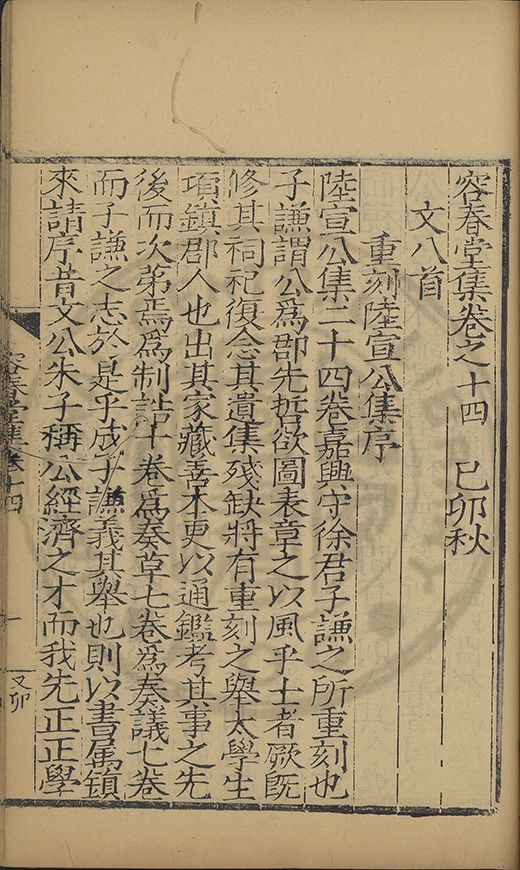 容春堂集卷之十四　己卯秋
文八首
重刻陸宣公集序
陸宣公集二十四卷嘉興守徐君子謙之所重刻也
子謙謂公爲郡先哲欲圖表章之以風乎士者厥旣
修其祠祀復念其遺集殘缺將有重刻之舉太學生
項鎮郡人也出其家藏善本更以通鑑考其事之先
後而次第焉爲制誥十卷爲奏草七卷爲奏議七卷
而子謙之志於是乎成子謙義其舉也則以書属鎮
來請序昔文公朱子稱公經濟之才而我先正正學
容春堂集卷十四
一